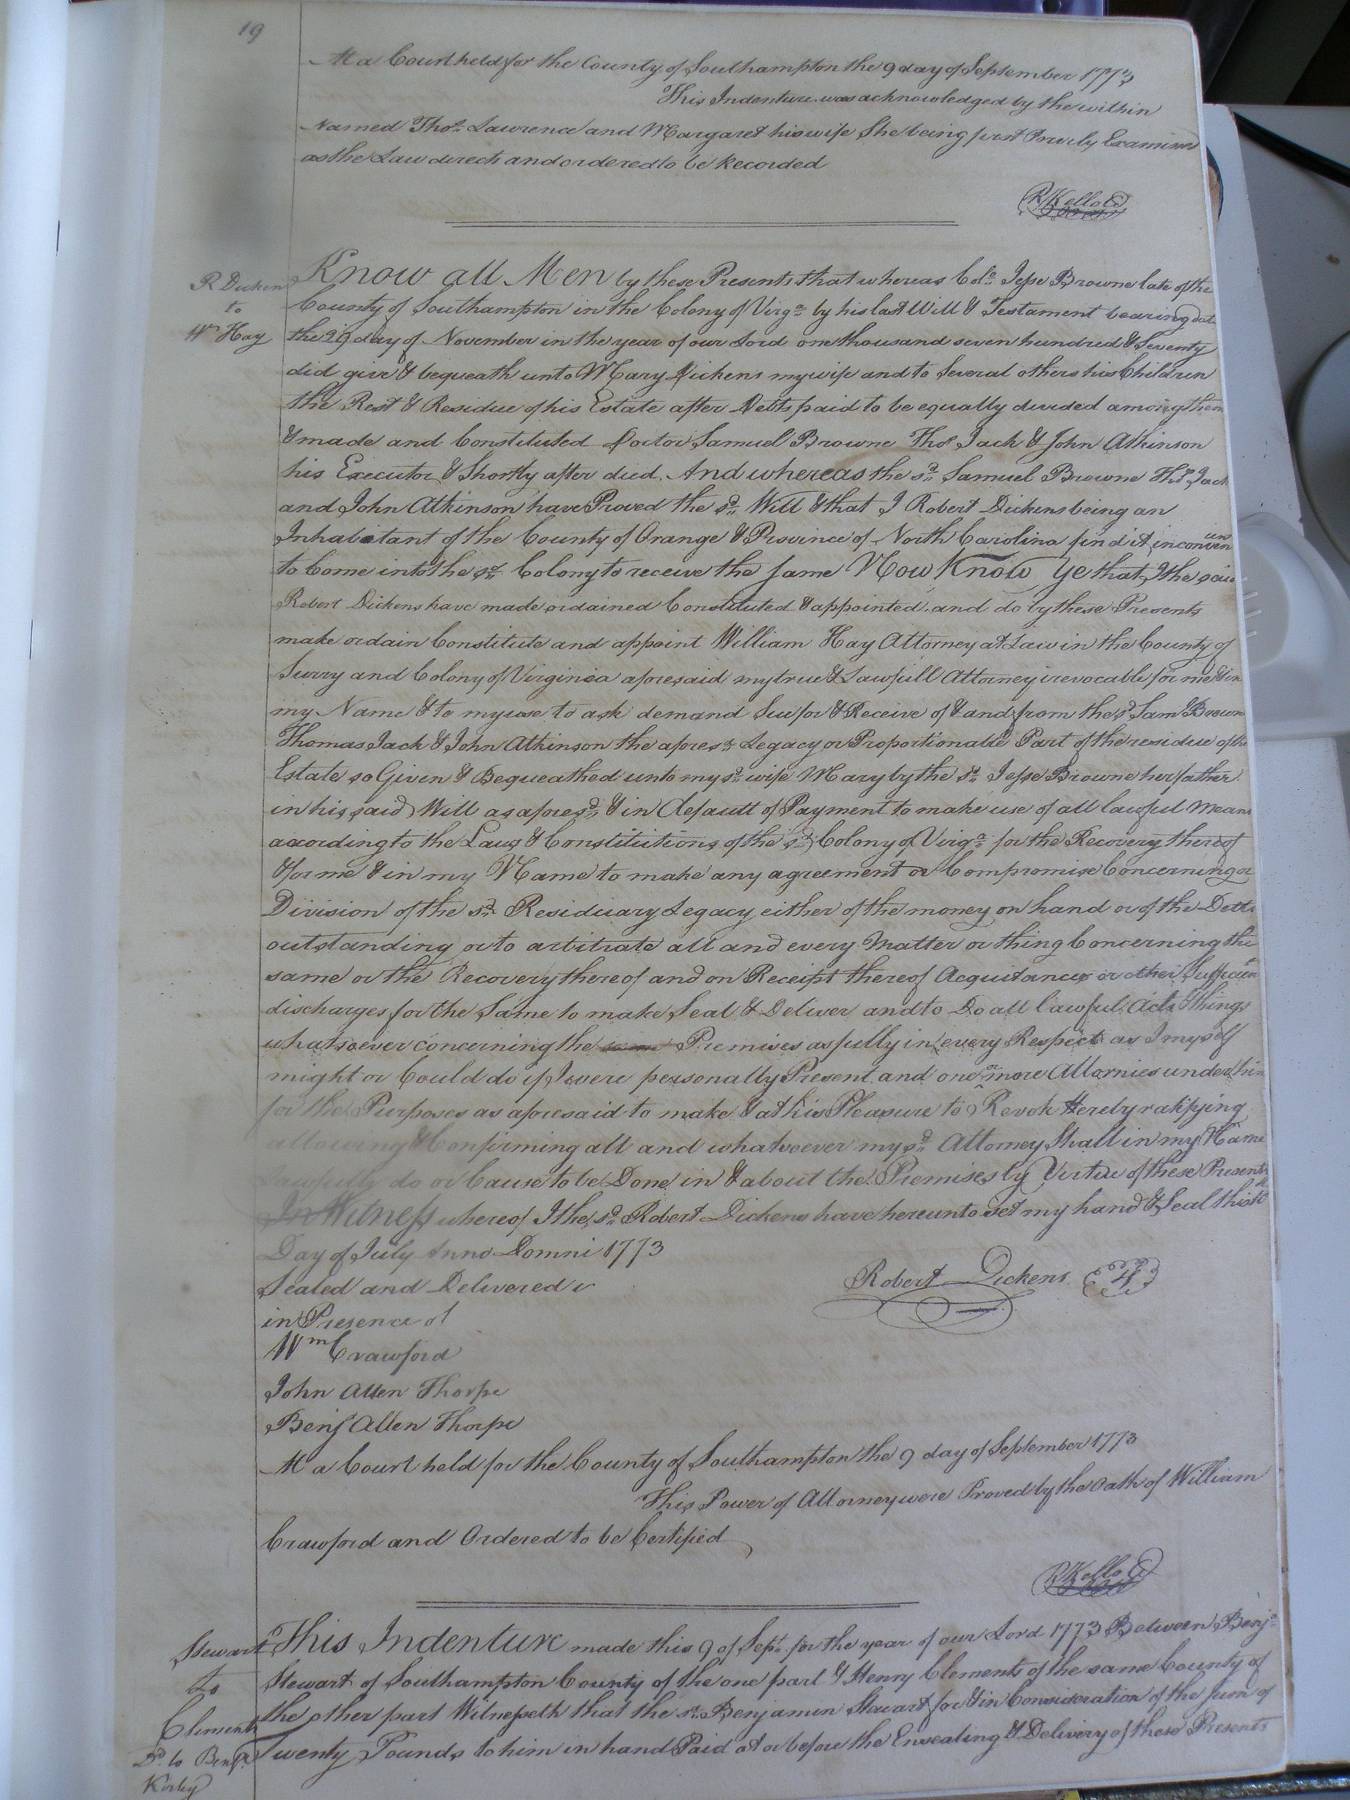 19
At a Court held for the County of Southampton the 9 day of September 1773
This Indenture was acknowledged by the within
Named Thos. Lawrence and Margaret his wife She being first Privily Examined
as the Law directs and ordered to be Recorded
R Kello
Know all Men by these Presents that whereas Colo. Jesse Browne late of the
R Dickens
to
Wm Hay
County of Southampton in the Colony of Virga. by his last Will & Testament bearing date
the 29 day of November in the year of our Lord one thousand seven hundred & Seventy
did give & bequeath unto Mary Dickens my wife and to Several others his Children
the Rest & Residue of his Estate after Debts paid to be equally divided among them
& made and Constituted Doctor Samuel Browne Thos. Jack & John Atkinson
his Executor & Shortly after died. And whereas the sd. Samuel Browne Thos. Jack
and John Atkinson have Proved the sd. Will & that I Robert Dickens being an
Inhabitant of the County of Orange & Province of North Carolina find it inconven
to Come into the sd. Colony to receive the Same Now Know Ye that I the said
Robert Dickens have made ordained Constituted & appointed and do by these Presents
make ordain Constitute and appoint William Hay Attorney at Law in the County of
Surry and Colony of Virginia aforesaid my true & Lawfull Attorney irevocable for me & in
my Name & to my use to ask demand Sue for & Receive of & and from the sd. Saml Brown
Thomas Jack & John Atkinson the aforesd. Legacy or Proportionable Part of the residue of the
Estate so Given & Bequeathed unto my sd. wife Mary by the sd. Jesse Browne her father
in his said Will as aforesd. & in default of Payment to make use of all lawful Means
according to the Laws & Constitutions of the sd. Colony of Virga. for the Recovery thereof
& for me & in my Name to make any agreement or Compromise Concerning a
Division of the sd. Residuary Legacy either of the money on hand or of the Debts
outstanding or to arbitrate all and every Matter or thing Concerning the
same or the Recovery thereof and on Receipt thereof Acquitances or other Sufficient
discharges for the Same to make Seal & Deliver and to Do all lawful Acts & Things
whatsoever concerning the Premises as fully in every Respect as I myself
might or Could do if I were personally Present and one or more Attornies under him
for the Purposes as aforesaid to make & at his Pleasure to Revok Hereby ratifying
allowing & Confirming all and whatsoever my sd. Attorney Shall in my Name
lawfully do or Cause to be Done in & about the Premises by Virtue of these Presents
In Witness whereof I the sd. Robert Dickens have hereunto set my hand & Seal this
Day of July Anno Domni 1773
Sealed and Delivered
Robert Dickens
in Presence of
Wm Crawford
John Allen Thorpe
Benj Allen Thorpe
At a Court held for the County of Southampton the 9 day of September 1773
This Power of Attorney were Proved by the Oath of William
Crawford and Ordered to be Certified
R Kello
This Indenture made this 9 of Sept. for the year of our Lord 1773 Between Benja.
Stewart
to
Clements
Do. to Benja.
Stewart of Southampton County of the one part & Henry Clements of the same County of
the other part Witnesseth that the sd. Benjamin Stewart for & in Consideration of the Sum of
Twenty Pounds to him in hand Paid at or before the Ensealing & Delivery of these Presents